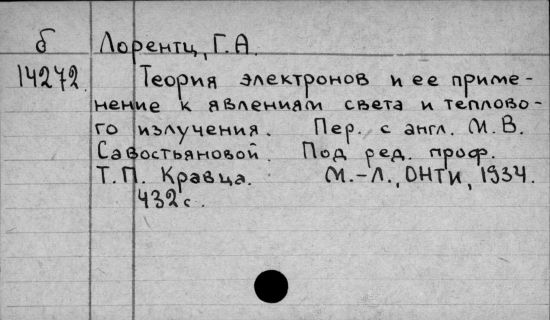 б Лорентц, Г. А.
14272. Теория электронов и ее приме-
нение к явлениям света и теплово-
го излучения. Пер. с англ. М. В.
Савостьяновой. Под ред. проф.
Т. П. Кравца. М.-Л., ОНТИ, 1934.
432 с.